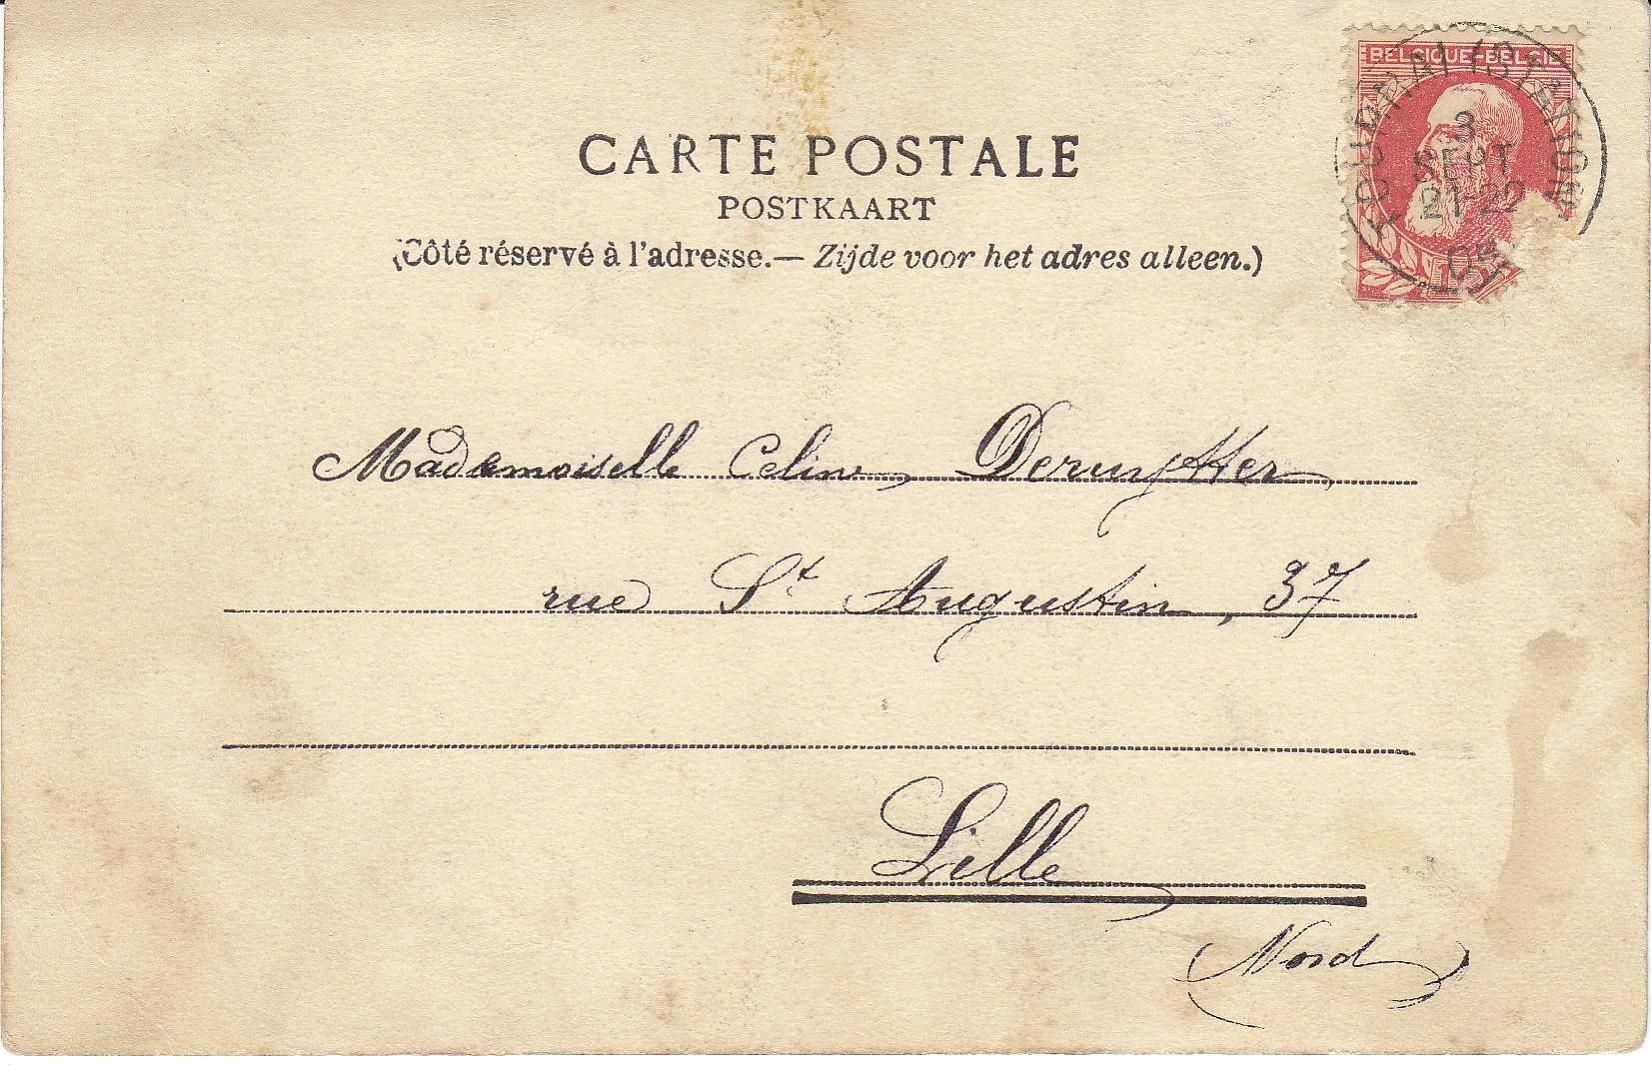 CARTE POSTALE
POSTKAART
(Côté réservé à l'adresse.— Zijde voor het adres alleen.)
BELGIQUE-BELGIE
TOURNAI (STATION)
3
SEPT
21-22
05
Mademoiselle Celine Deruytter
rue St Augustin, 37
Lille
(Nord)